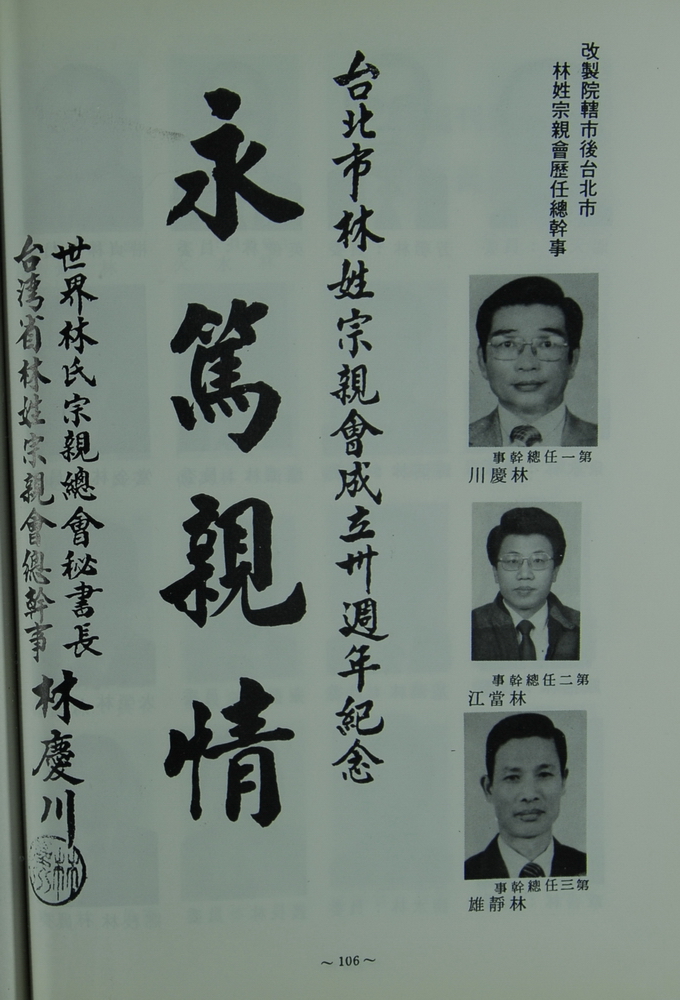 改製院轄市後台北市
林姓宗親會歷任總幹事
事幹總任一第
川慶林
事幹總任二第
江當林
事幹總任三第
雄靜林
台北市林姓宗親會成立卅週年紀念
永篤親情
世界林氏宗親總會秘書長
台湾省林姓宗親會總幹事
林慶川
～106～